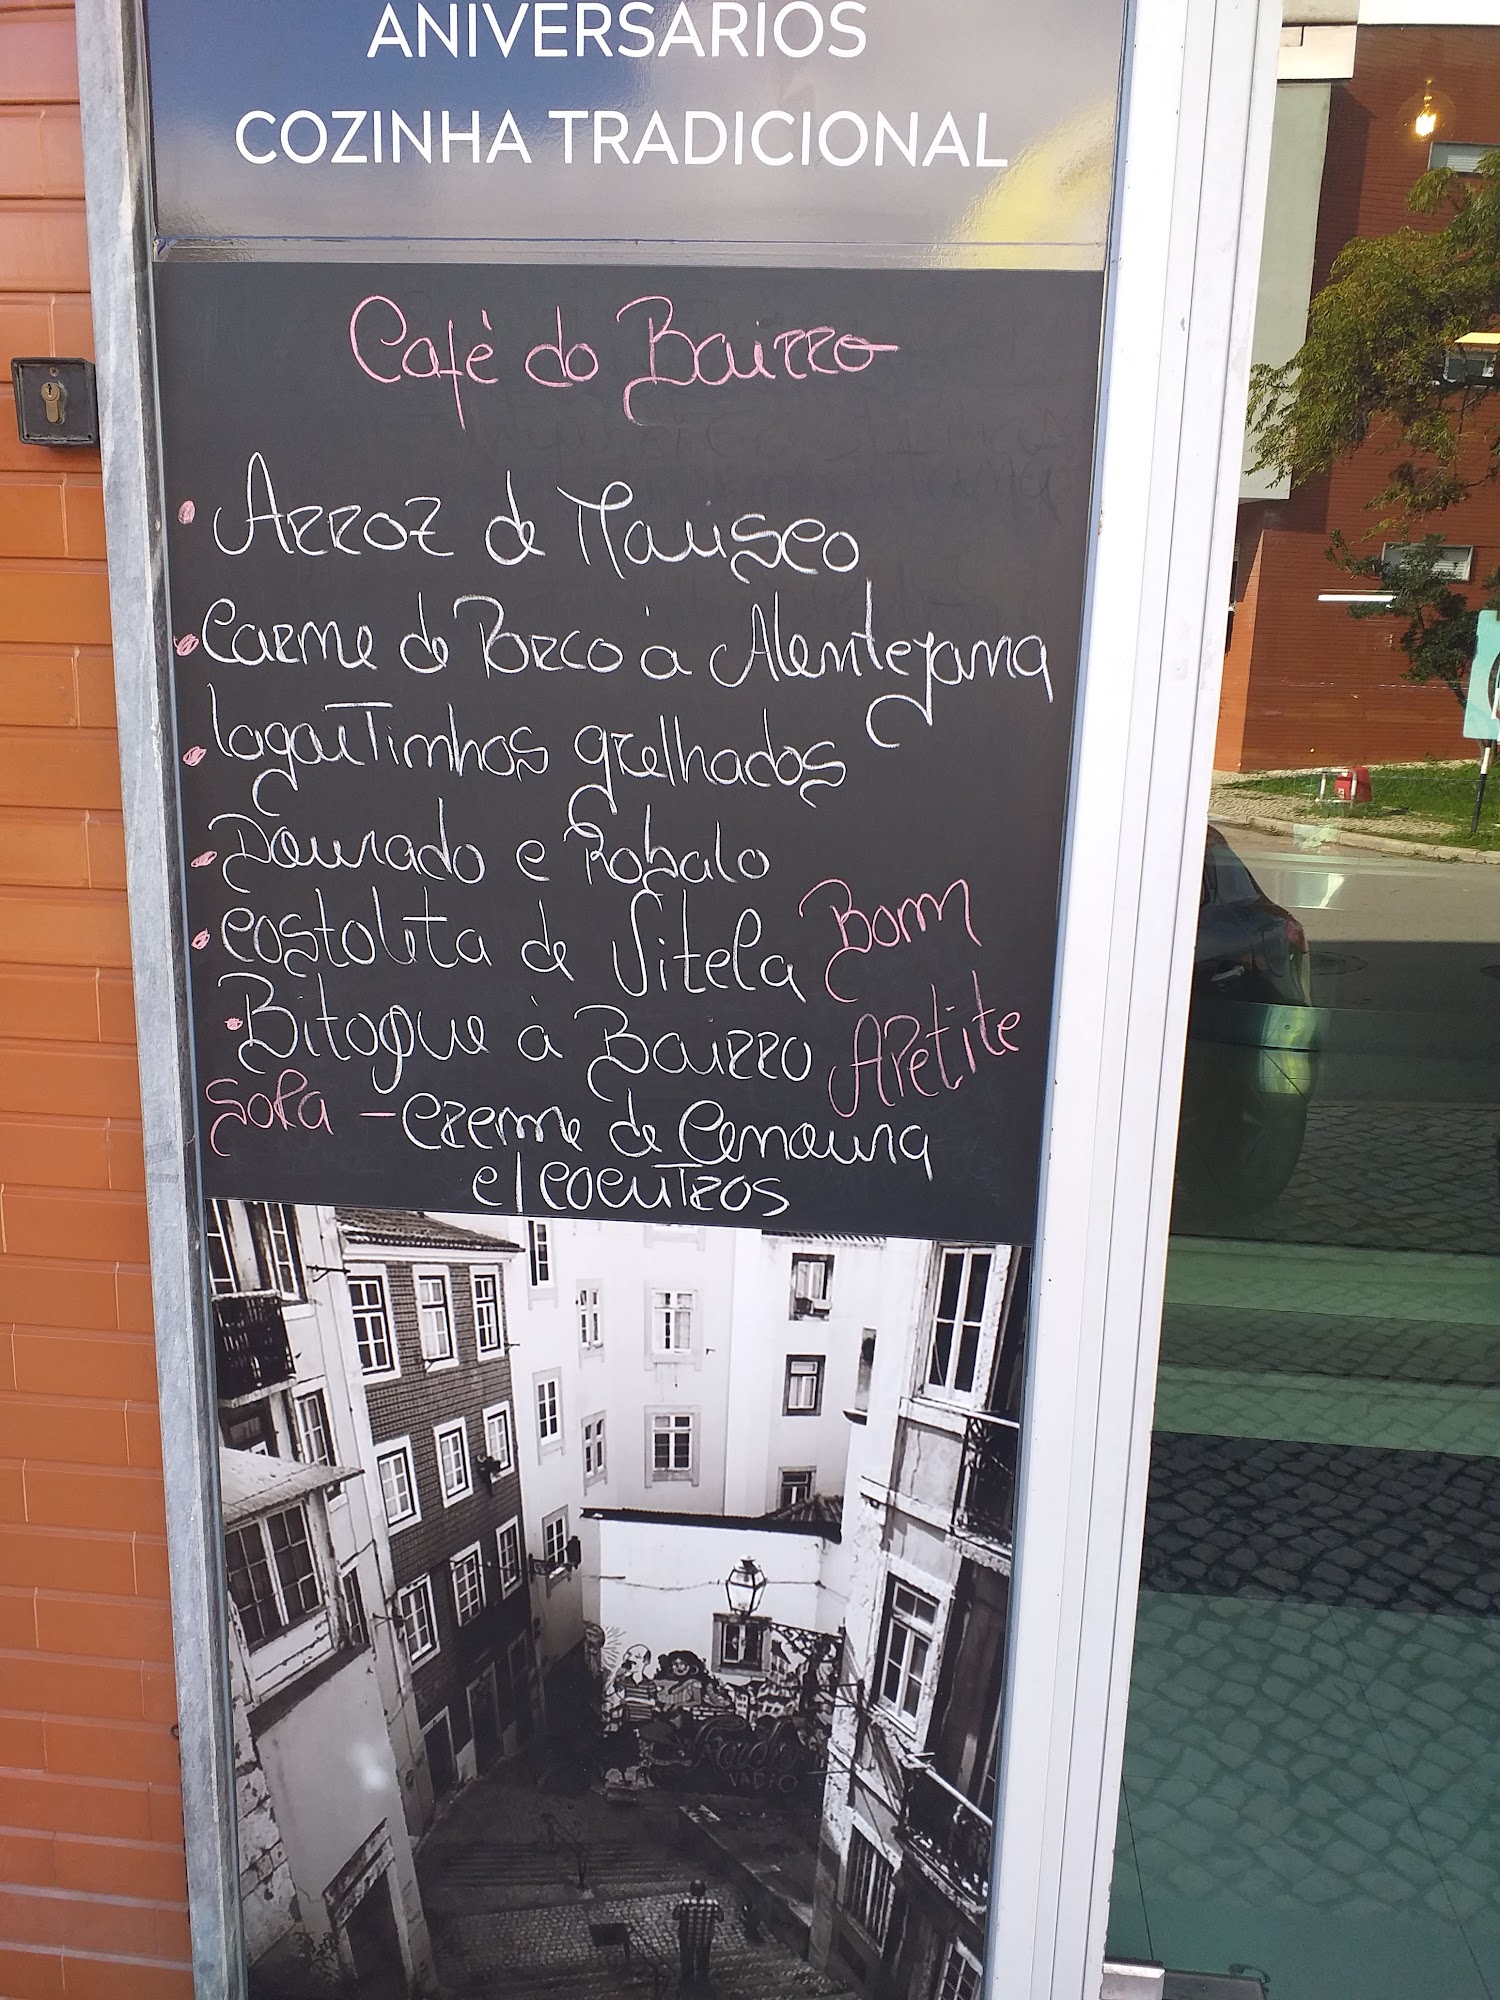 ANIVERSÁRIOS
COZINHA TRADICIONAL
Café do Bairro
Arroz de Marisco
Carne de Porco à Alentejana
lagartinhos grelhados
Dourado e Robalo
costoleta de Vitela
Bom
Bitoque à Bairro
Apetite
Sopa - creme de Cenoura
c/coentros
VADIO